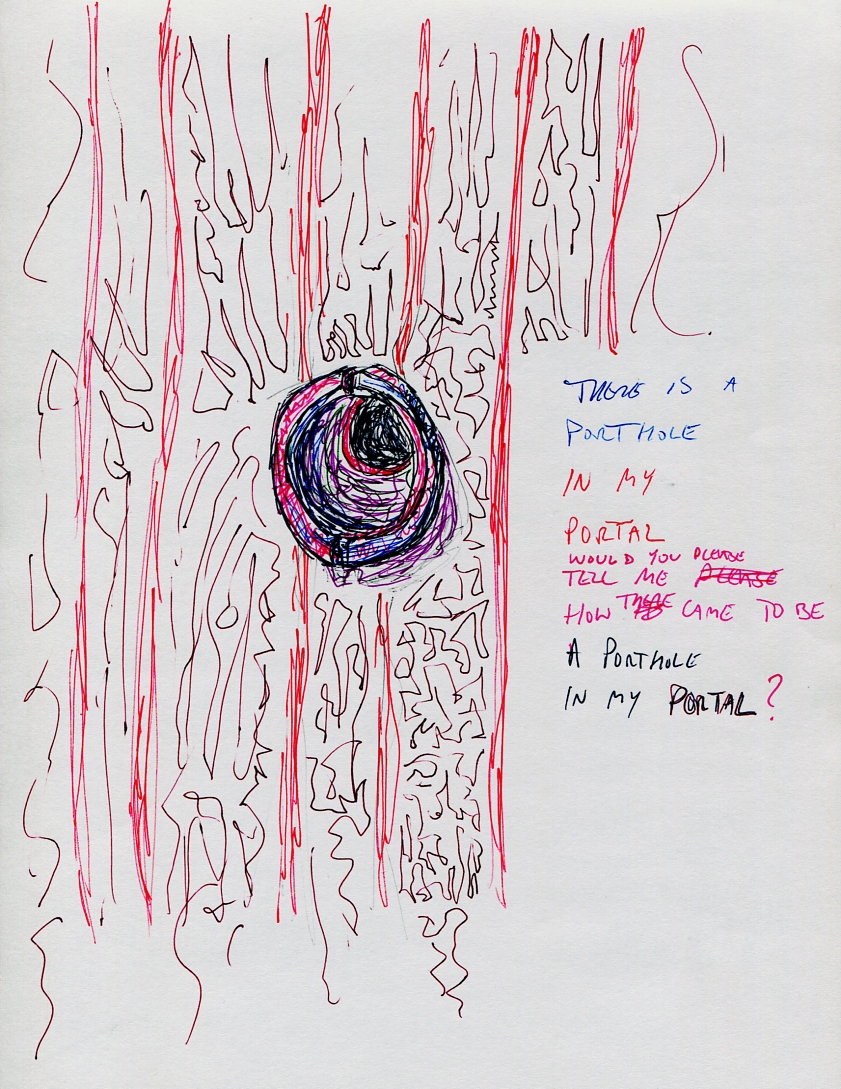 THERE IS A
PORTHOLE
IN MY
PORTAL
WOULD YOU PLEASE
TELL ME PLEASE
HOW THERE CAME TO BE
A PORTHOLE
IN MY PORTAL?